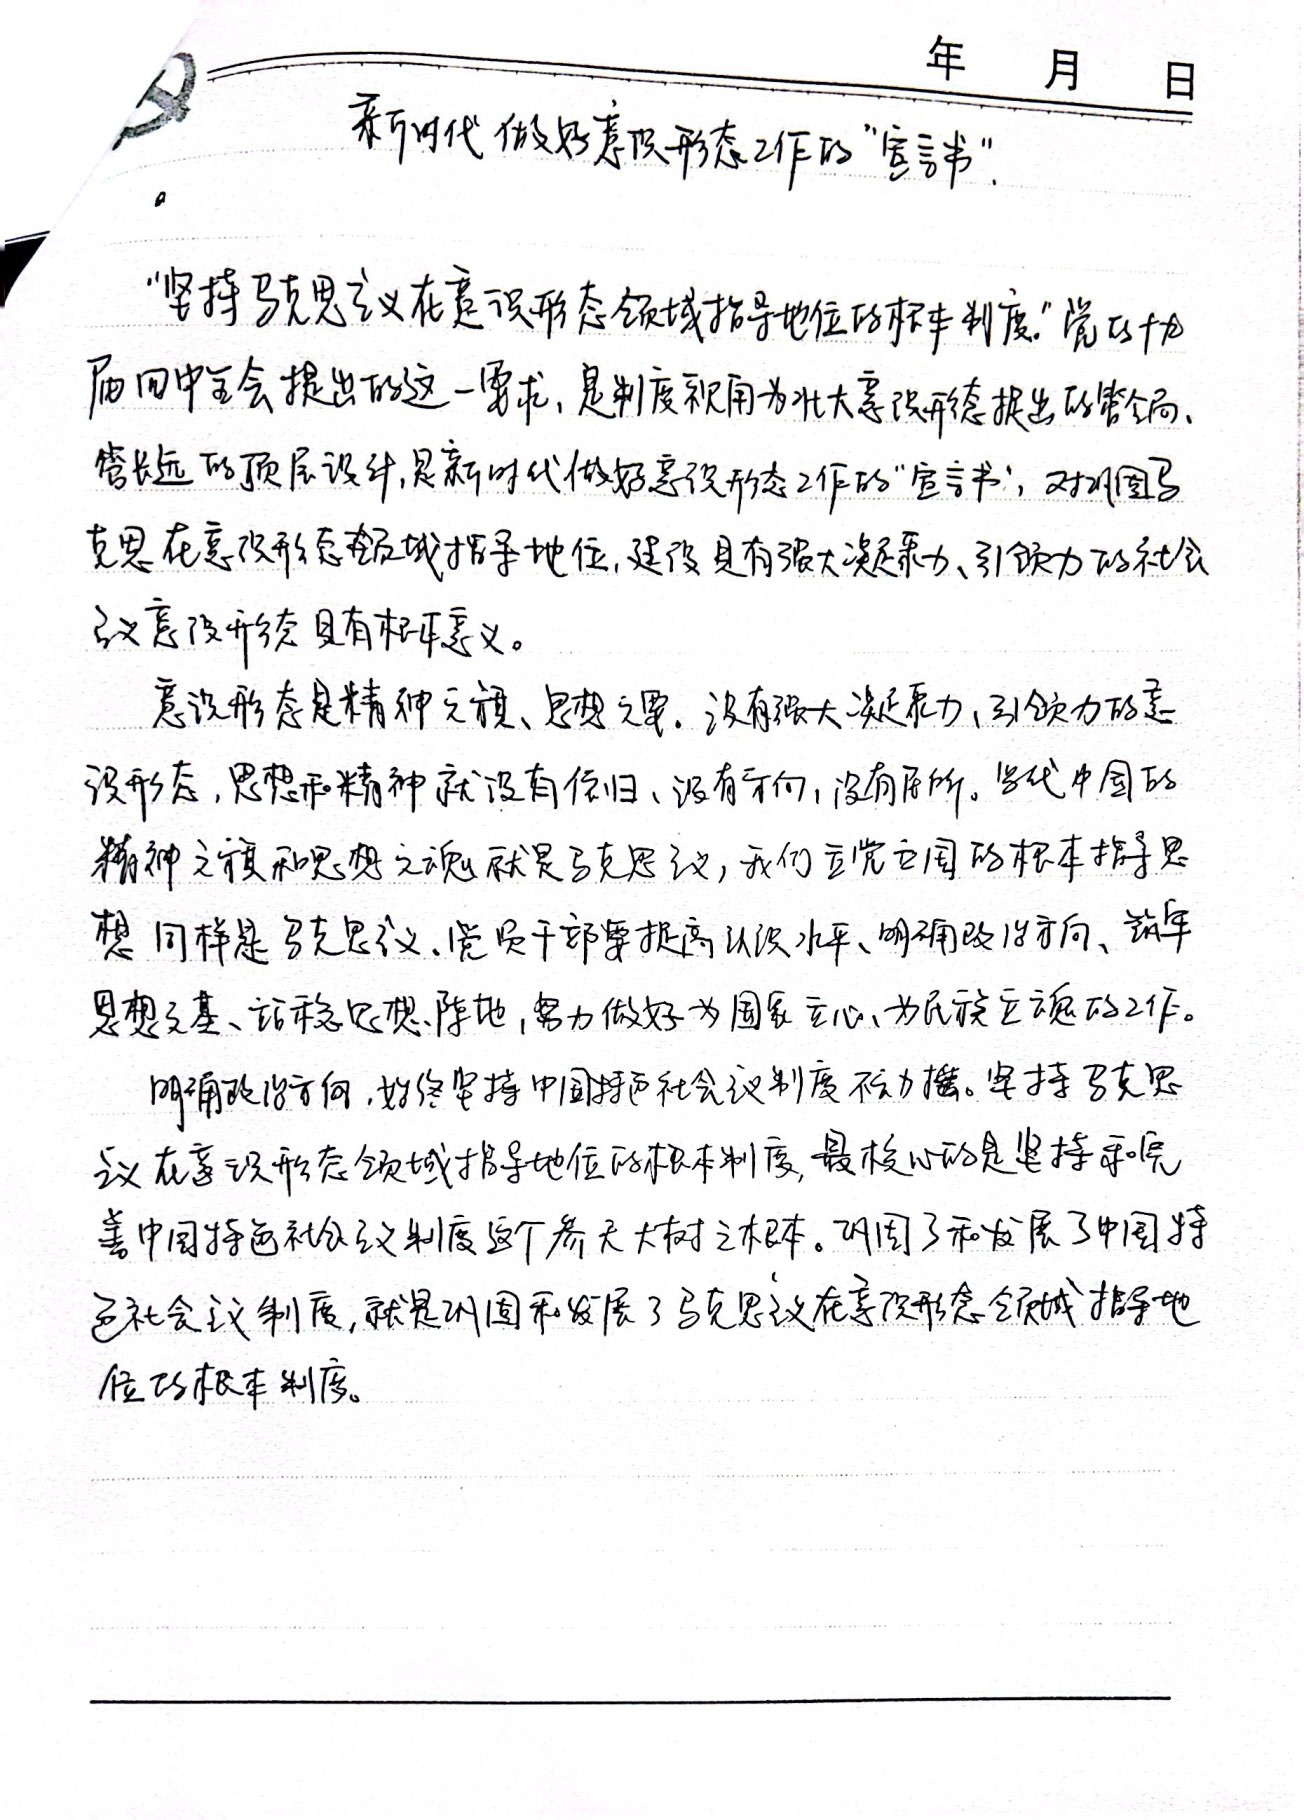 年 月 日
新时代做好意识形态工作的“宣言书”.
“坚持马克思主义在意识形态领域指导地位的根本制度。”党的十九
届四中全会提出的这一要求，是制度视角为壮大意识形态提出的管全局、
管长远的顶层设计，是新时代做好意识形态工作的“宣言书”，对巩固马
克思在意识形态领域指导地位，建设具有强大凝聚力、引领力的社会
主义意识形态具有根本意义。
意识形态是精神之旗、思想之。没有强大凝聚力、引领力的意
识形态，思想和精神就没有依归、没有方向，没有居所。当代中国的
精神之旗和思想之魂就是马克思主义，我们立党立国的根本指导思
想同样是马克思主义、党员干部要提高认识水平、明确政治方向、筑牢
思想之基、站稳思想、阵地，努力做好为国家立心、为民族立魂的工作。
明确政治方向，始终坚持中国特色社会主义制度不动摇。坚持马克思
主义在意识形态领域指导地位的根本制度，最核心的是坚持和完
善中国特色社会主义制度这个参天大树之根本。巩固了和发展了中国特
色社会主义制度，就是巩固和发展了马克思主义在意识形态领域指导地
位的根本制度。